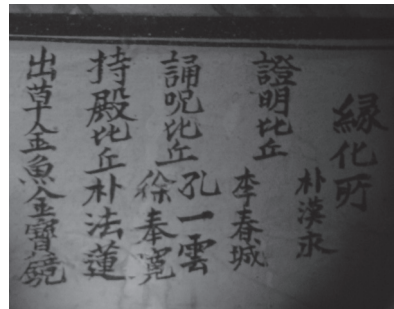 縁化所
證明比丘 朴漢永
李春城
誦呪比丘 孔一雲
徐奉寬
持殿比丘朴法蓮
出草金魚金寶鏡